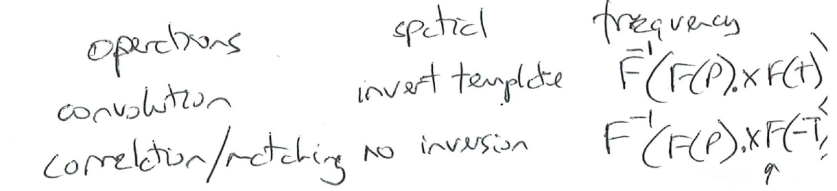 operations spatial frequency
convolution invert template F⁻¹(F(P).×F(t))
correlation/matching no inversion F⁻¹(F(P).×F(-T)